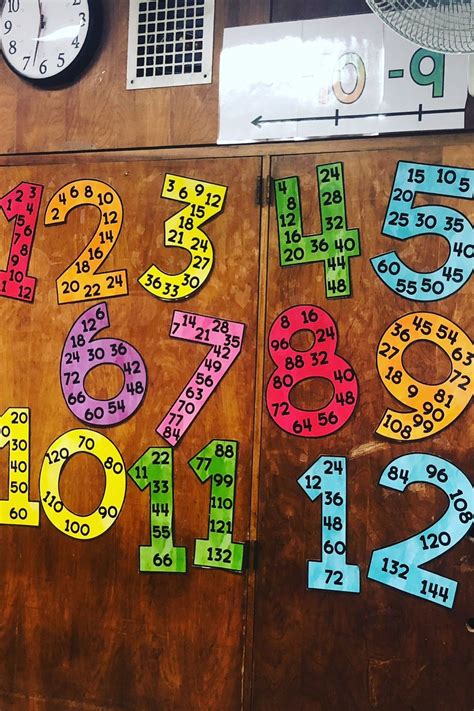 -10 -9
1
1 2 3
4
5
6
7
8
9 10
11 12
2
2 4 6 8 10
12
14
16
18
20 22 24
3
3 6 9 12
15
18
21 24
27
30
33 36
4
4 24
8 28
12 32
16 20 36 40
44
48
5
5 10 15
20
25 30 35 40
45
50
55
60
6
6 12
18
24 30 36
42
48
54 60
66
72
7
7 14 21 28
35
42
49
56
63
70
77
84
8
8 16
24
32
40
48
56 64
72
80
88
96
9
9 18 27
36 45 54
63
72
81
90
99
108
10
10
20
30
40
50
60
70
80
90
100
110
120
11
11 22
33
44
55
66
77 88
99
110
121
132
12
12 24
36
48
60
72
84 96
108
120
132 144